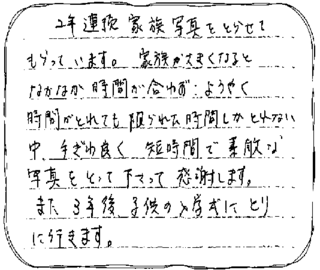 2年連続 家族写真をとらせて
もらっています。 家族が大きくなると
なかなか 時間が合わず、ようやく
時間がとれても 限られた時間しかとれない
中、手ぎわ良く 短時間で 素敵な
写真をとって下さって 感謝します。
また 3年後 子供の入学式に とり
に行きます。